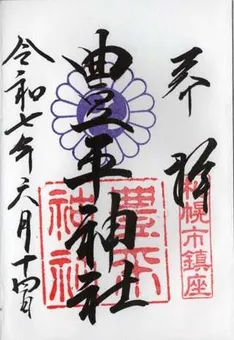 奉拝
札幌市鎮座
豊平神社
豊平
神社
令和七年六月十四日